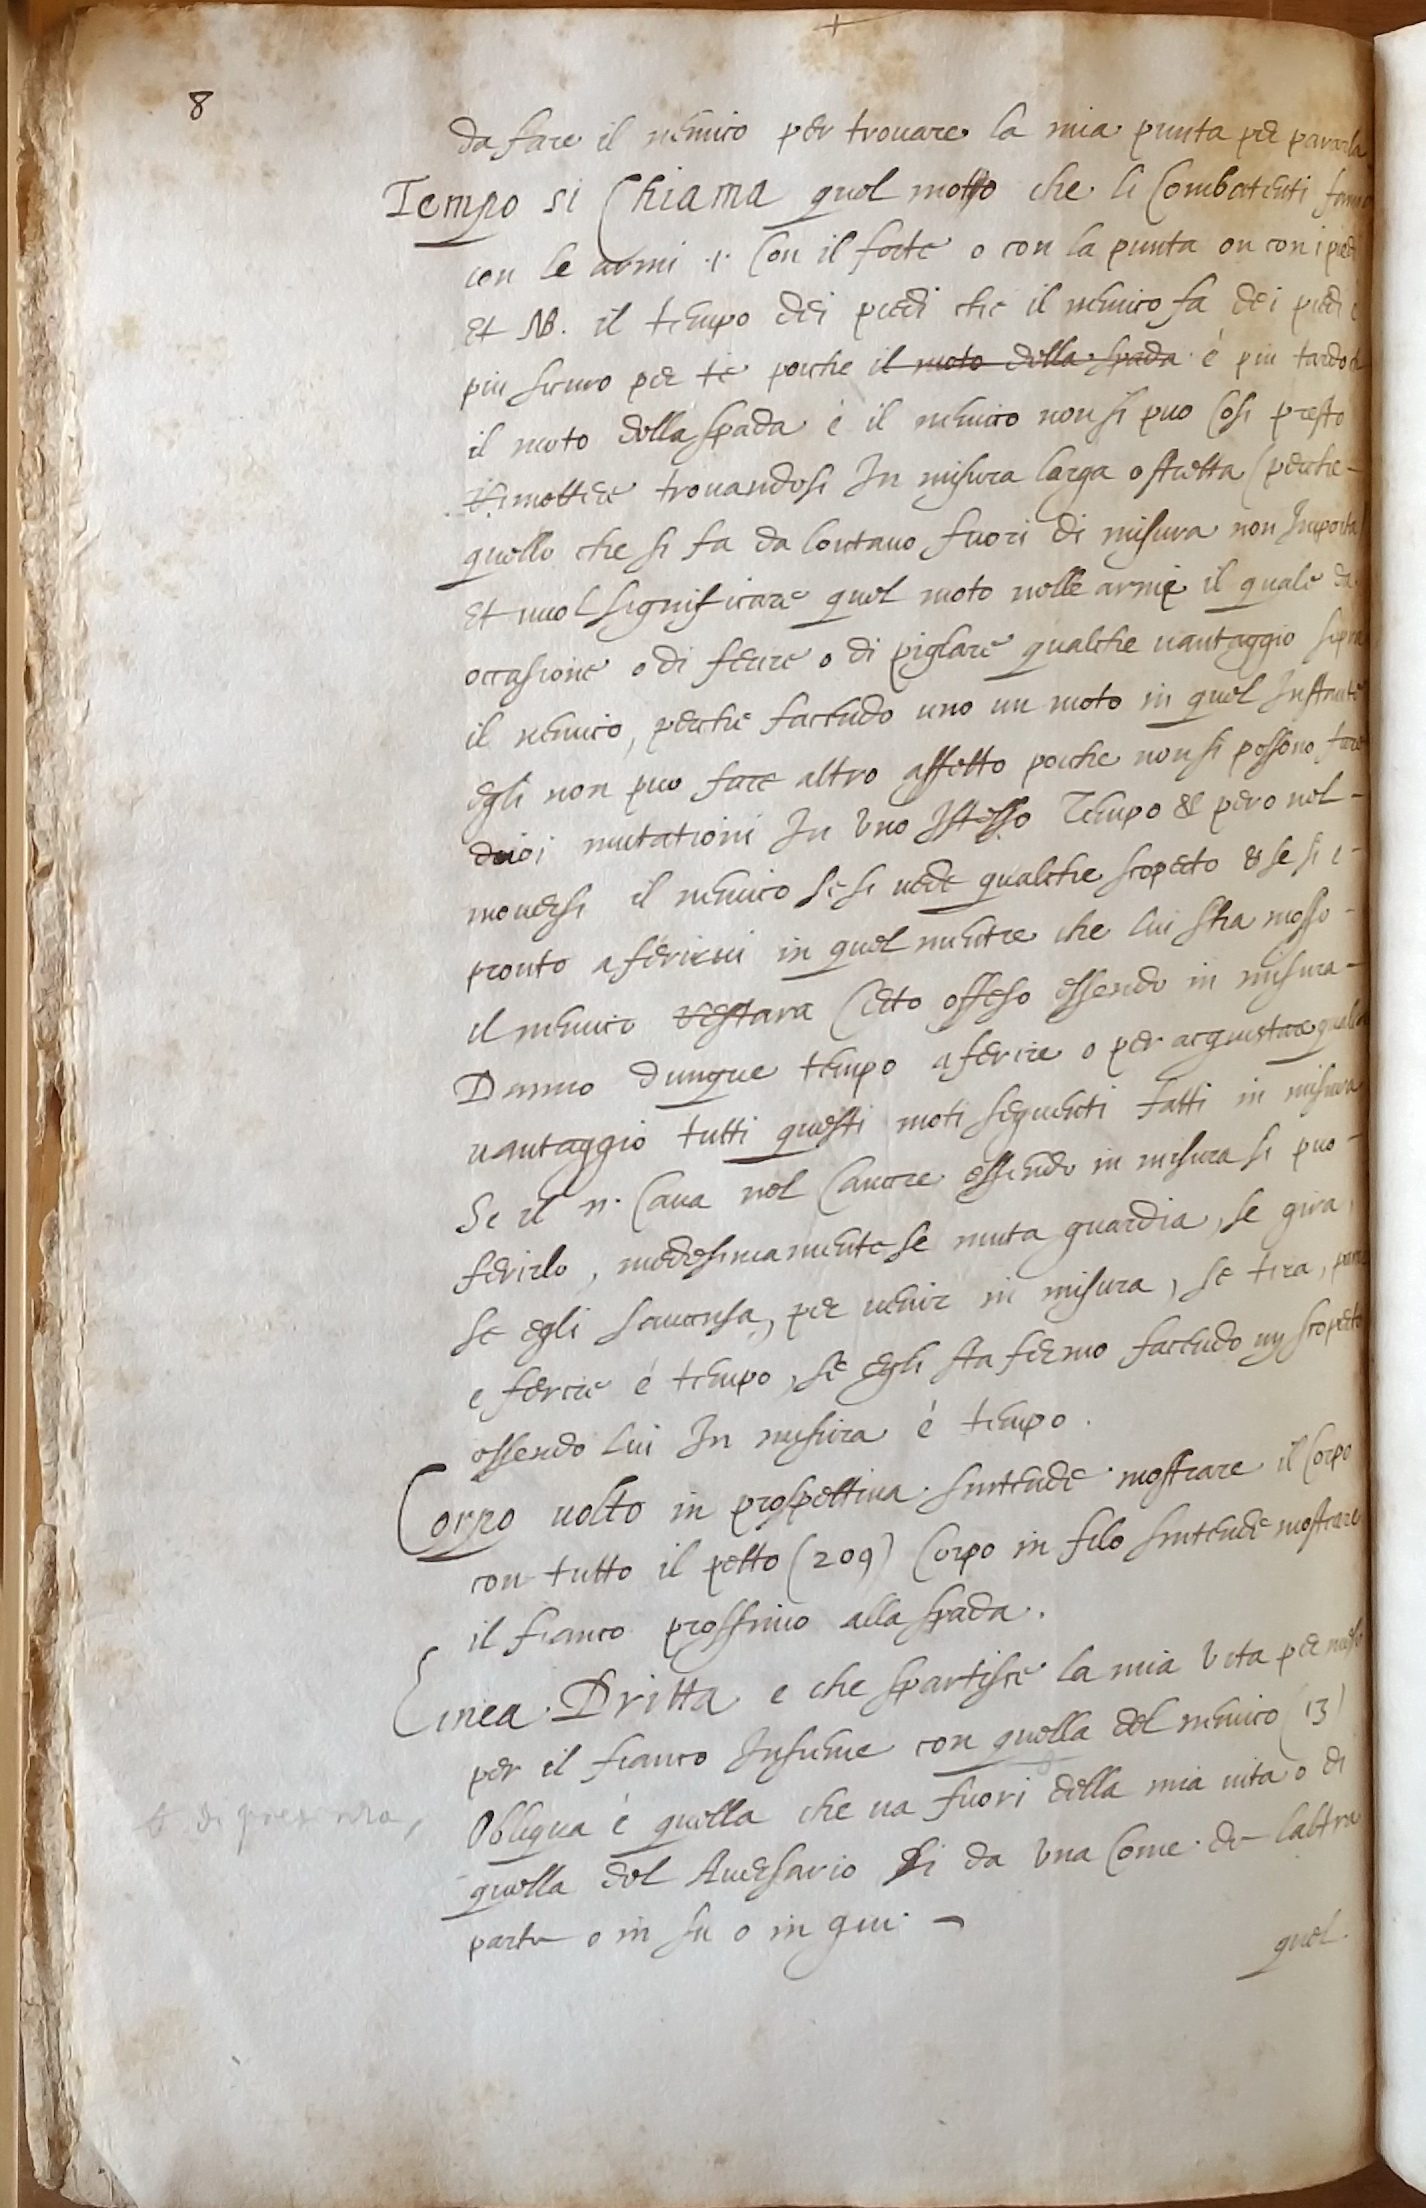 8
da fare il nemico per trouare la mia punta per pararla
Tempo si Chiama quel motto che li Combatenti fanno
con le armi .i. Con il forte o con la punta ou con i piedi
et NB. il tempo dei piedi che il nemico fa dei piedi e
piu sicuro per te poiche il moto della spada è piu tardo
il moto della spada è il nemico non si puo Cosi presto
rimettere trouandosi In misura larga o stretta (perche
quello che si fa da lontano fuori di misura non Importa
et uuol significare quel moto nelle armi il quale da
occasione o di ferire o di piglare qualche uantaggio sopra
il nemico, perche facendo uno un moto in quel Instante
egli non puo fare altro effetto poiche non si possono fare
duoi mutationi In Uno Istesso Tempo & pero nel
mouersi il nemico se si uede qualche scoperto & se si è
pronto a ferirui in quel mentre che lui stia mosso
il nemico restara Certo offeso essendo in misura
Danno dunque tempo a ferire o per acquistare qualche
uantaggio tutti questi moti sequenti fatti in misura
Se il n. Caua nel Cauare essendo in misura si puo
ferirlo, medesimamente se muta guardia, se gira,
se egli sauansa, per uenir in misura, se tira, para
e ferire è tempo, se egli sta fermo facendo un scoperto
essendo lui In misura è tempo.
Corpo uolto in prospettiua. sintende mostrare il Corpo
con tutto il petto (209) Corpo in filo sintende mostrare
il fianco prossimo alla spada.
Linea Dritta e che spartisce la mia Vita per mezo
per il fianco Insieme con quella del nemico (13)
Obliqua è quella che ua fuori della mia uita o di
quella del Auersario si da Una Come da laltra
parte o in su o in giu.
quel.